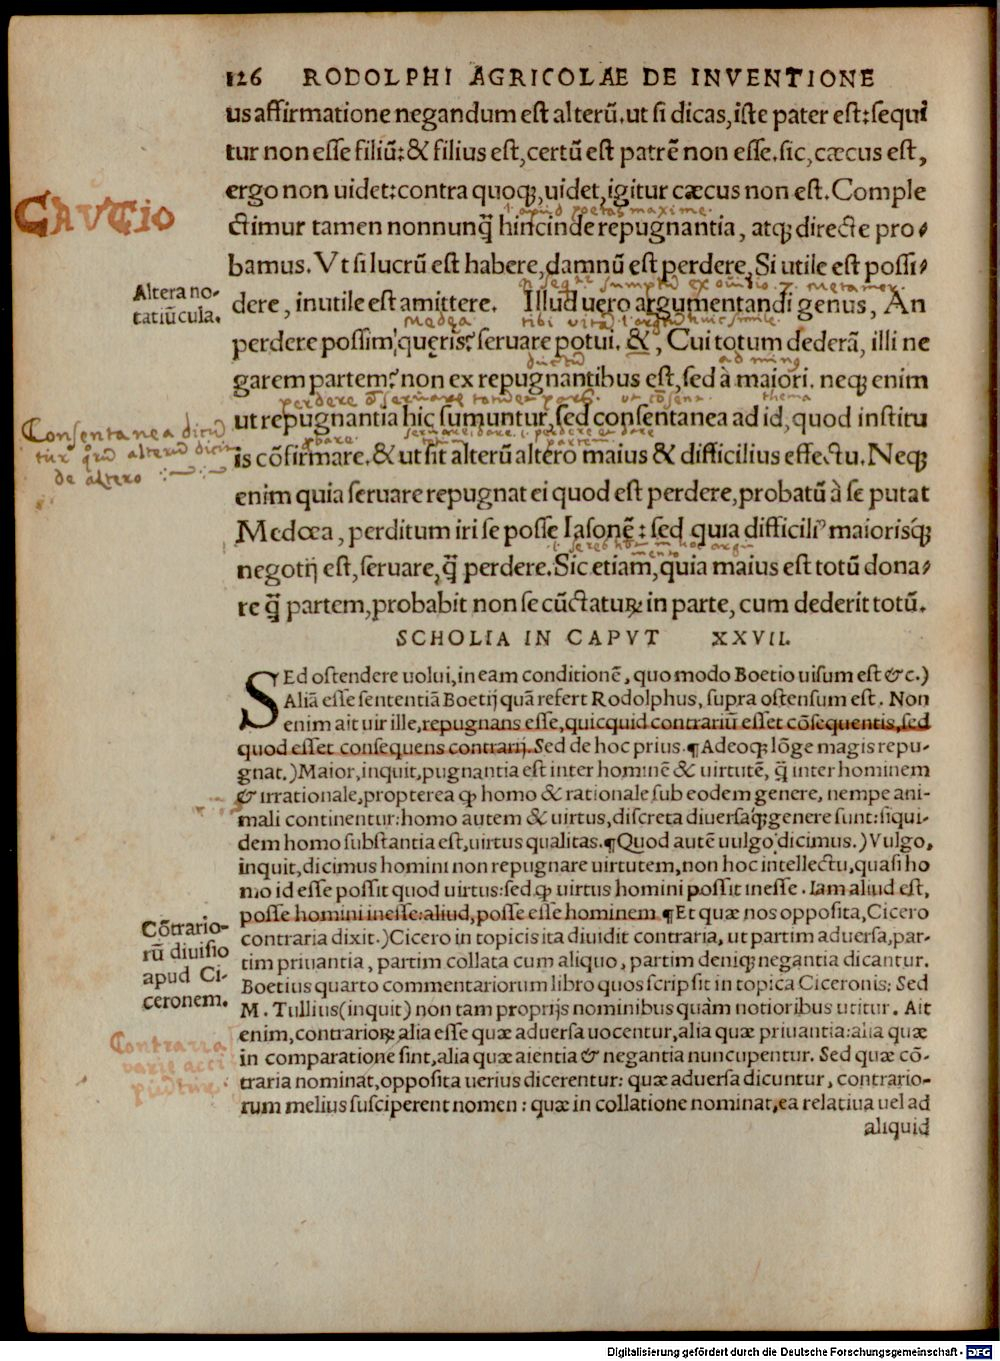 126 RODOLPHI AGRICOLAE DE INVENTIONE
us affirmatione negandum est alterũ. ut si dicas, iste pater est: sequi
tur non esse filiũ: & filius est, certũ est patrẽ non esse. sic, cæcus est,
ergo non uidet: contra quoq;, uidet, igitur cæcus non est. Comple
CAVTIO
i. apud poetas maxime.
ctimur tamen nonnunq̃ hincinde repugnantia, atq; directe pro-
bamus. Vt si lucrũ est habere, damnũ est perdere, Si utile est possi-
Altera no-
tatiũcula.
sumptũ ex ouidio 7. Metamor.
dere, inutile est amittere. Illud uero argumentandi genus, An
Medea
tibi
huic simile.
perdere possim, quęris? seruare potui. &, Cui totum dederã, illi ne
ad minus
garem partem? non ex repugnantibus est, sed à maiori. neq; enim
thema
ut repugnantia hic sumuntur, sed consentanea ad id, quod institu
Consentanea dicũ
tur qñ alterũ dicit
de altero
totum
partem
is cõfirmare. & ut sit alterũ altero maius & difficilius effectu. Neq;
enim quia seruare repugnat ei quod est perdere, probatũ à se putat
Medœa, perditum iri se posse Iasonẽ: sed quia difficili⁹ maiorisq́;
negotij est, seruare, q̃ perdere. Sic etiam, quia maius est totũ dona-
re q̃ partem, probabit non se cũctaturꝝ in parte, cum dederit totũ.
SCHOLIA IN CAPVT XXVII.
SEd ostendere uolui, in eam conditionẽ, quo modo Boetio uisum est &c.)
Aliã esse sententiã Boetij quã refert Rodolphus, supra ostensum est. Non
enim ait uir ille, repugnans esse, quicquid contrariũ esset cõsequentis, sed
quod esset consequens contrarij. Sed de hoc prius. ¶Adeoq; lõge magis repu-
gnat.) Maior, inquit, pugnantia est inter hominẽ & uirtutẽ, q̃ inter hominem
& irrationale, propterea ꝙ homo & rationale sub eodem genere, nempe ani-
mali continentur: homo autem & uirtus, discreta diuersaq́; genere sunt: siqui-
dem homo substantia est, uirtus qualitas. ¶Quod autẽ uulgo dicimus.) Vulgo,
inquit, dicimus homini non repugnare uirtutem, non hoc intellectu, quasi ho
mo id esse possit quod uirtus: sed ꝙ uirtus homini possit inesse. Iam aliud est,
posse homini inesse: aliud, posse esse hominem. ¶Et quæ nos opposita, Cicero
Cõtrario-
rũ diuisio
apud Ci-
ceronem.
contraria dixit.) Cicero in topicis ita diuidit contraria, ut partim aduersa, par-
tim priuantia, partim collata cum aliquo, partim deniq; negantia dicantur.
Boetius quarto commentariorum libro quos scripsit in topica Ciceronis: Sed
M. Tullius (inquit) non tam proprijs nominibus quàm notioribus utitur. Ait
Contraria
varie acci
piũtur
enim, contrariorꝝ alia esse quæ aduersa uocentur, alia quæ priuantia: alia quæ
in comparatione sint, alia quæ aientia & negantia nuncupentur. Sed quæ cõ-
traria nominat, opposita uerius dicerentur: quæ aduersa dicuntur, contrario-
rum melius susciperent nomen: quæ in collatione nominat, ea relatiua uel ad
aliquid
Digitalisierung gefördert durch die Deutsche Forschungsgemeinschaft - DFG